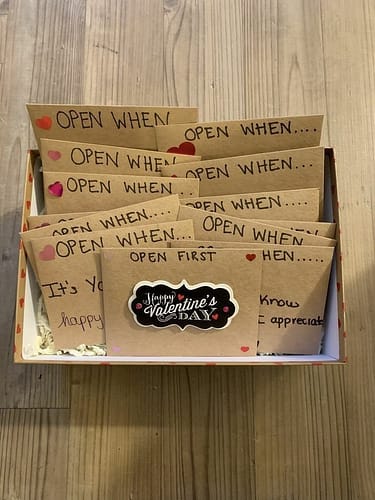 OPEN WHEN
OPEN WHEN....
OPEN WHEN
OPEN WHEN....
OPEN WHEN
OPEN WHEN....
OPEN WHEN....
OPEN WHEN
OPEN WHEN....
It's Yo
happy
OPEN FIRST
Happy
Valentine's
DAY
HEN.....
Know
I appreciate